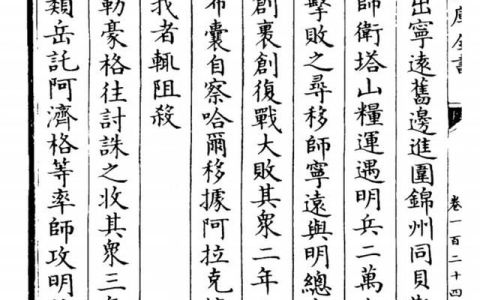 庫全書
卷一百二十四
出寧遠舊邊進圍錦州同貝
師衛塔山糧運遇明兵二萬
擊敗之尋移師寧遠與明總
創裹創復戰大敗其衆二年
布囊自察哈爾移據阿拉克
我者輒阻殺
勒豪格往討誅之收其衆三
類岳託阿濟格等率師攻明